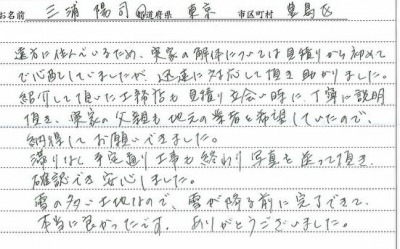 お名前 三浦 陽司 都道府県 東京 市区町村 豊島区
遠方に住んでいるため、実家の解体については見積りから初めて
で心配していましたが、迅速に対応して頂き助かりました。
紹介して頂いた工務店も見積り立会い時に丁寧に説明
頂き、実家の父親も地元の業者を希望していたので、
納得してお願いできました。
滞りなく予定通り工事も終わり写真も送って頂き
確認でき安心しました。
雪の多い土地なので、雪が降る前に完了できて、
本当に良かったです。ありがとうございました。